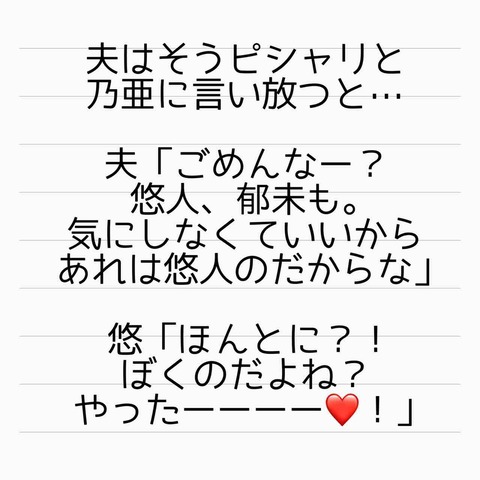 夫はそうピシャリと
乃亜に言い放つと…
夫「ごめんなー？
悠人、郁未も。
気にしなくていいから
あれは悠人のだからな」
悠「ほんとに？！
ぼくのだよね？
やったーーーー❤️！」